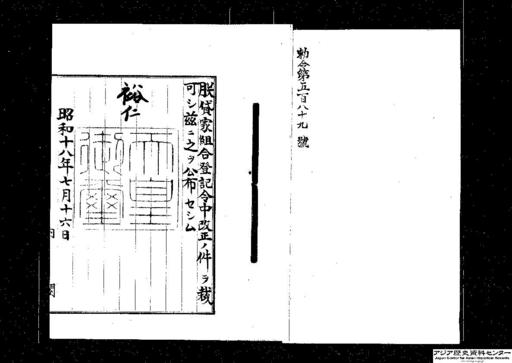 勅令第五百八十九號
朕貸家組合登記令中改正ノ件ヲ裁
可シ茲ニ之ヲ公布セシム
裕仁
天皇御璽
昭和十八年七月十六日
内閣
アジア歴史資料センター
Japan Center for Asian Historical Records